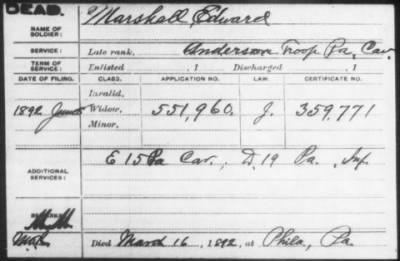 DEAD.
NAME OF SOLDIER: Marshall Edward
SERVICE: Late rank, Anderson Troop Pa, Cav.
TERM OF SERVICE: Enlisted , 1 Discharged , 1
DATE OF FILING. CLASS. APPLICATION NO. LAW. CERTIFICATE NO.
Invalid,
1892 Widow, 551,960. J. 359,771
Minor,
ADDITIONAL SERVICES: E 15 Pa Cav., D, 19 Pa, Inf
REMARKS:
Died March 16, 1892, at Phila, Pa.